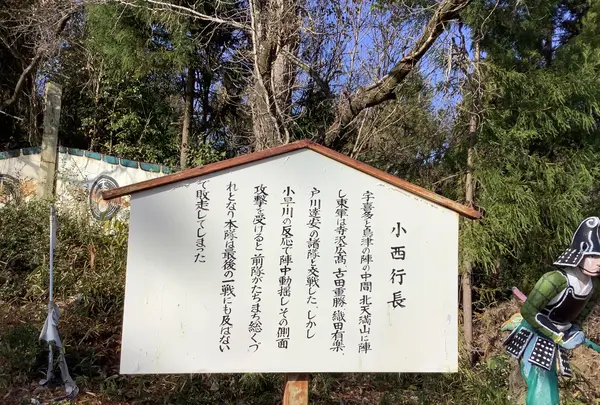 小西行長
宇喜多と島津の陣の中間、北天満山に陣
し東軍は寺沢広高、古田重勝、織田有楽、
戸川達安の諸隊と交戦した。しかし
小早川の反応で陣中動揺しその側面
攻撃を受けると前隊がたちまち総くづ
れとなり本隊は最後の一戦にも及ばない
で敗走してしまった